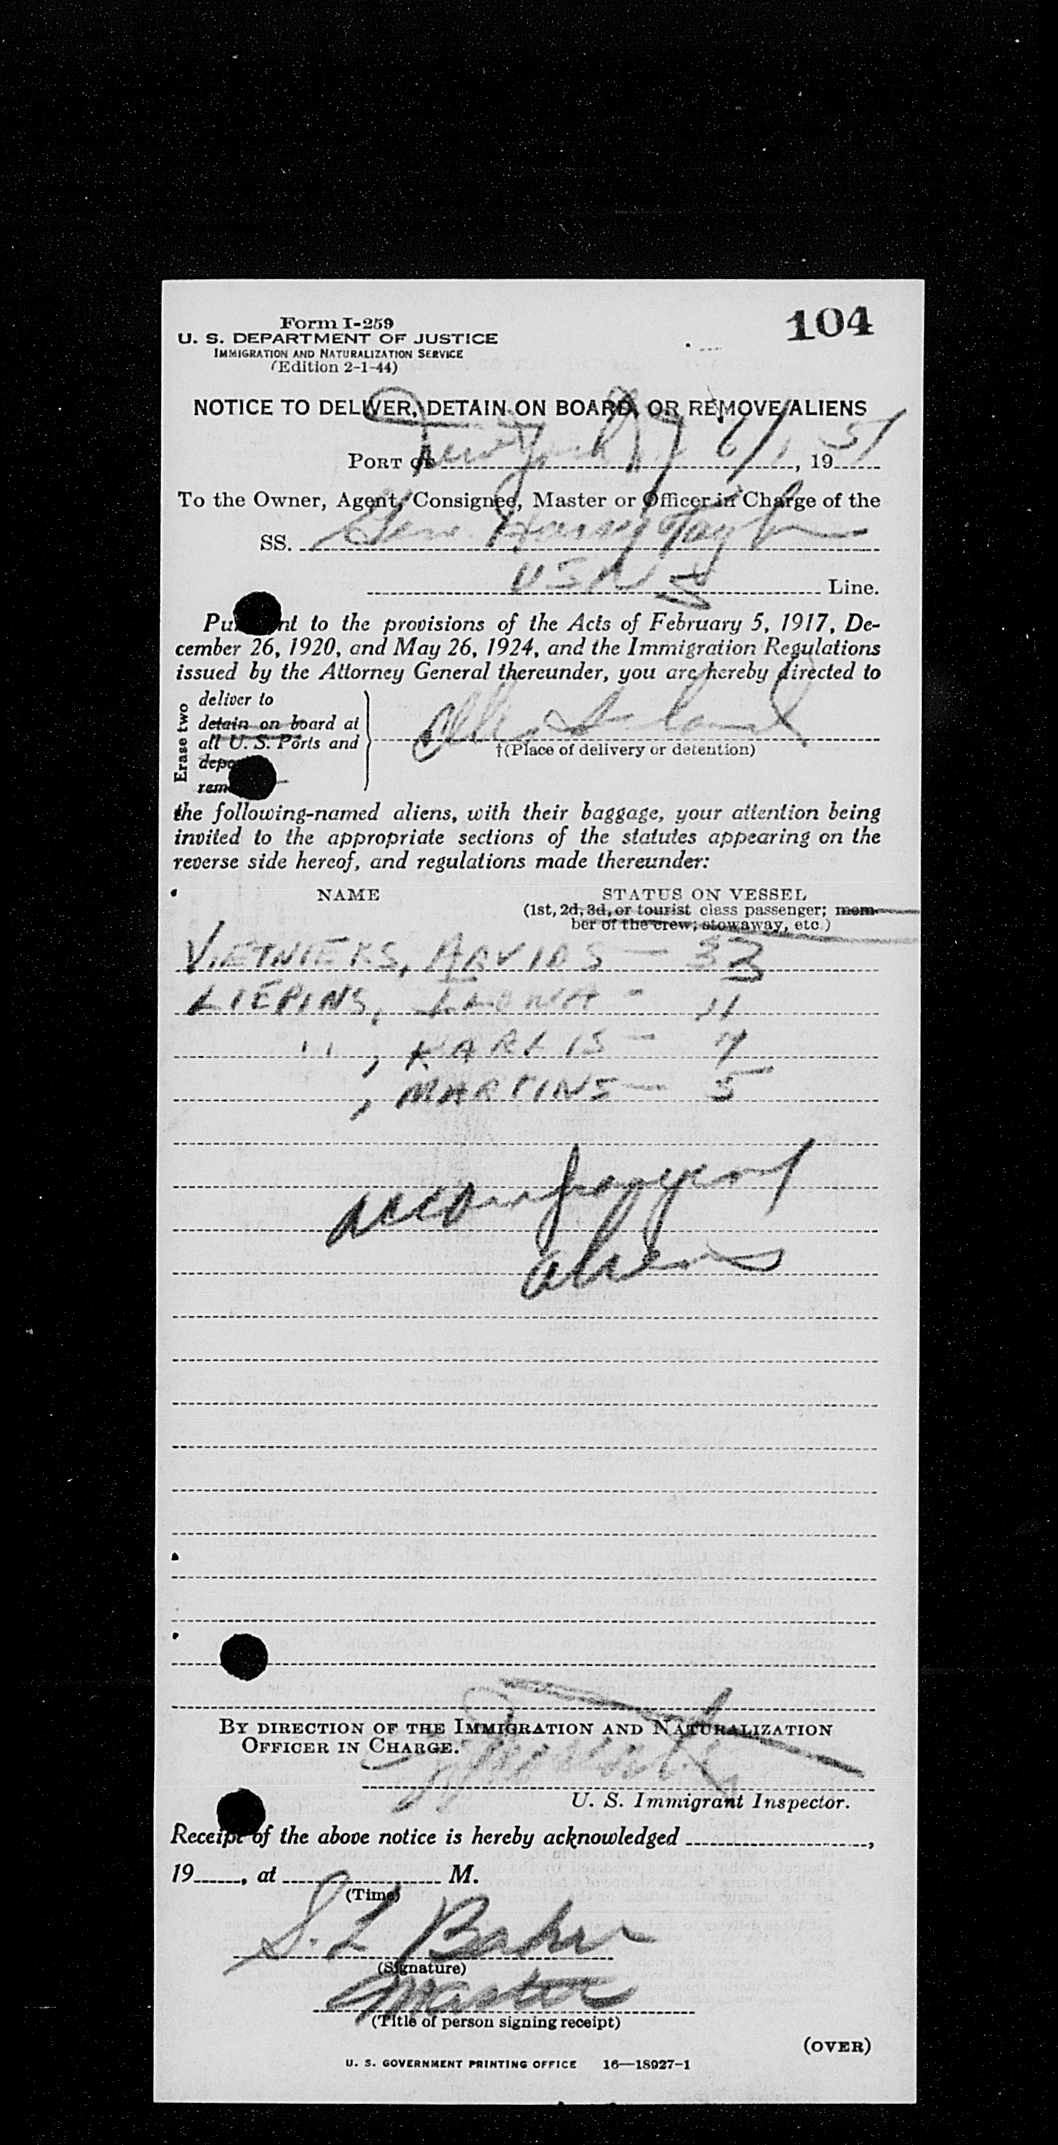 Form I-259
104
U. S. DEPARTMENT OF JUSTICE
IMMIGRATION AND NATURALIZATION SERVICE
(Edition 2-1-44)
NOTICE TO DELIVER, DETAIN ON BOARD, OR REMOVE ALIENS
PORT OF New York N Y 6/1, 1951
To the Owner, Agent, Consignee, Master or Officer in Charge of the
SS. Gen. Harry Taylor
USNS Line.
Pursuant to the provisions of the Acts of February 5, 1917, De-
cember 26, 1920, and May 26, 1924, and the Immigration Regulations
issued by the Attorney General thereunder, you are hereby directed to
Erase two
deliver to
detain on board at
all U. S. Ports and
Ellis Island
†(Place of delivery or detention)
the following-named aliens, with their baggage, your attention being
invited to the appropriate sections of the statutes appearing on the
reverse side hereof, and regulations made thereunder:
NAME STATUS ON VESSEL
(1st, 2d, 3d, or tourist class passenger; mem-
ber of the crew; stowaway, etc.)
VIETNIEKS, ARVIDS — 33
LIEPINS, ILONA - 11
" , KARLIS — 7
, MARTINS — 5
accompanying
aliens
BY DIRECTION OF THE IMMIGRATION AND NATURALIZATION
OFFICER IN CHARGE.
U. S. Immigrant Inspector.
Receipt of the above notice is hereby acknowledged ,
19 , at M.
(Time)
S. L Baker
(Signature)
Master
(Title of person signing receipt)
(OVER)
U. S. GOVERNMENT PRINTING OFFICE 16—18927-1